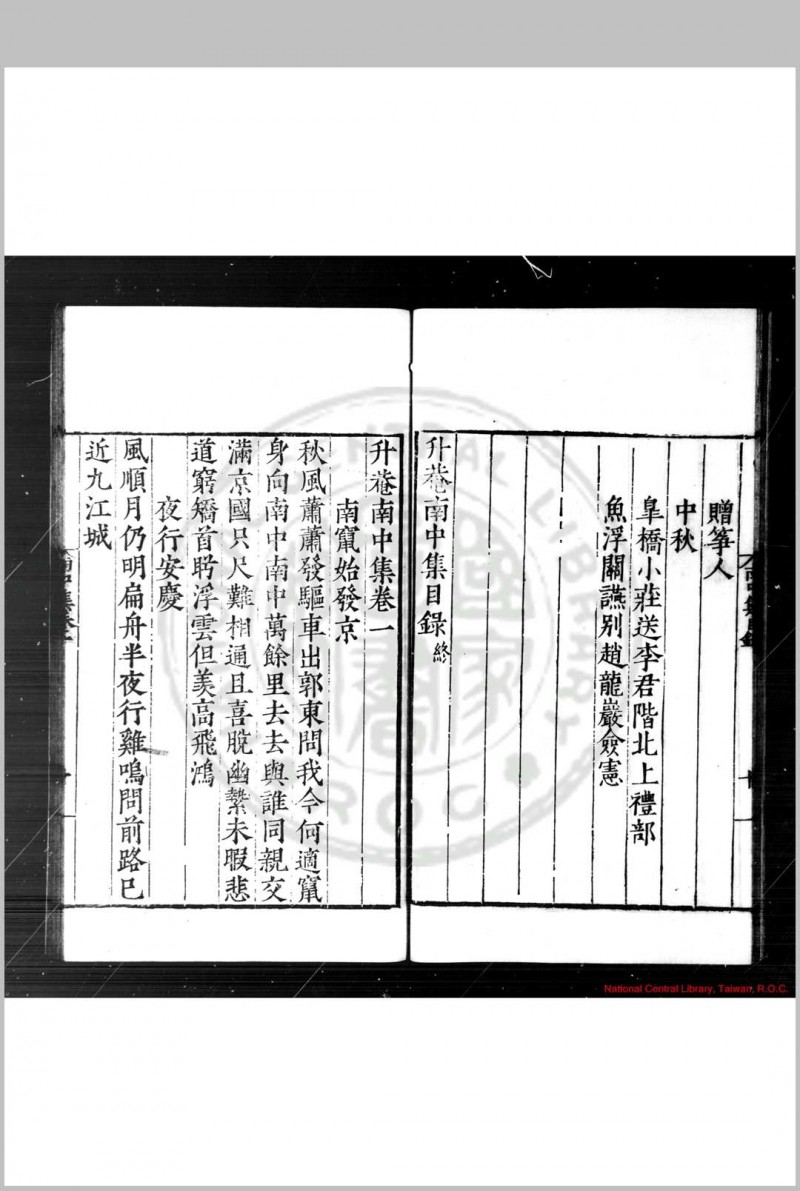 贈箏人
中秋
臯橋小莊送李君階北上禮部
魚浮關讌别趙龍巖僉憲
升菴南中集目錄 終
升菴南中集卷一
南竄始發京
秋風蕭蕭發驅車出郭東問我今何適竄
身向南中南中萬餘里去去與誰同親交
滿京國只尺難相通且喜脫幽縶未暇悲
道窮矯首盻浮雲但羨高飛鴻
夜行安慶
風順月仍明扁舟半夜行雞鳴問前路已
近九江城
National Central Library, Taiwan, R.O.C.